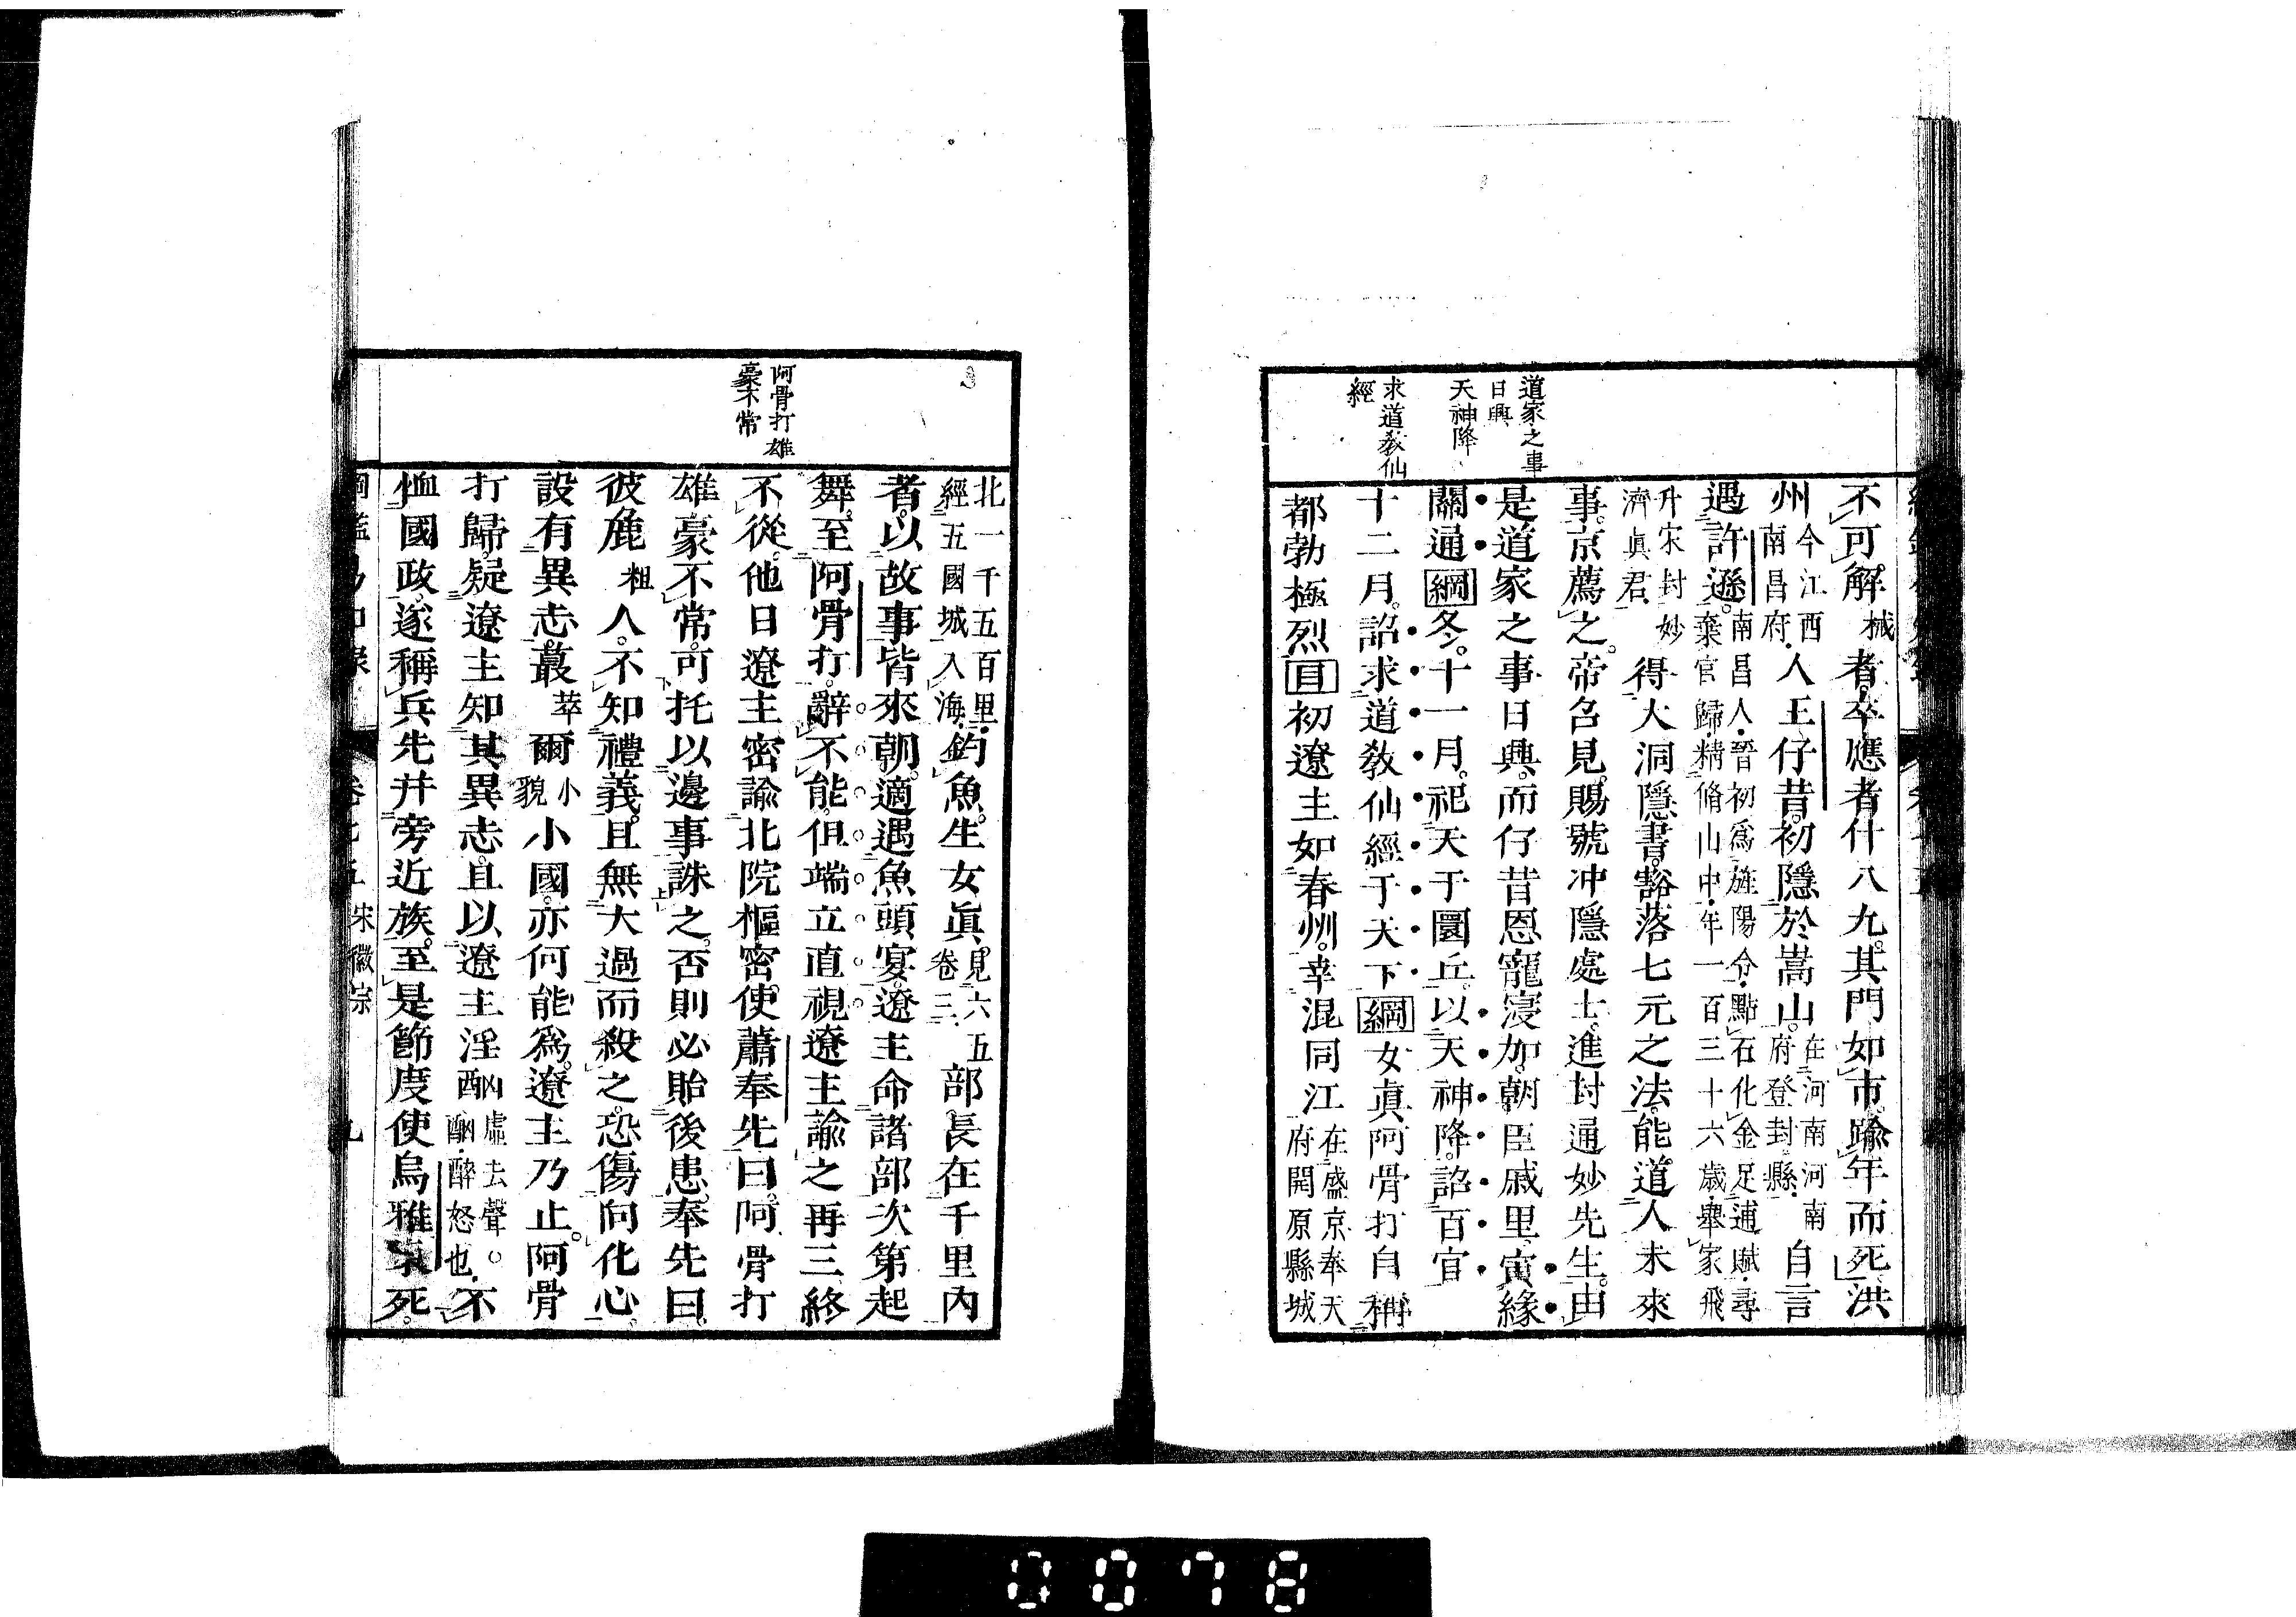 道家之事
日興
天神降
求道教仙
經
不可解械者。卒應者什八九。其門如市。踰年而死。洪
州今江西南昌府。人王仔昔。初隱於嵩山。在河南河南府登封縣。自言
遇許遜。南昌人。晉初爲旌陽令。點石化金足逋賦。尋棄官歸。精脩山中。年一百三十六歲。舉家飛
升宋封妙濟眞君。得大洞隱書。豁落七元之法。能道人未來
事。京薦之。帝召見。賜號冲隱處士。進封通妙先生。由
是道家之事日興。而仔昔恩寵寖加。朝臣戚里。寅緣
關通綱冬。十一月。祀天于圜丘。以天神降。詔百官
十二月。詔求道敎仙經于天下綱女眞阿骨打自稱
都勃極烈目初遼主如春州。幸混同江在盛京奉天府開原縣城
阿骨打雄
豪不常
北一千五百里。經五國城入海。釣魚。生女眞。見六五卷三。部長在千里內
者。以故事皆來朝。適遇魚頭宴。遼主命諸部次第起
舞。至阿骨打。辭不能。但端立直視遼主諭之再三終
不從。他日遼主密諭北院樞密使蕭奉先曰。阿骨打
雄豪不常。可托以邊事誅之。否則必貽後患。奉先曰。
彼麄粗人。不知禮義。且無大過而殺之。恐傷向化心。
設有異志。蕞萃爾小貌小國。亦何能爲。遼主乃止。阿骨
打歸。疑遼主知其異志。且以遼主淫酗虛去聲。酗。醉怒也。不
恤國政。遂稱兵先幷旁近族。至是節度使烏雅束死。
宋徽宗
九
0078